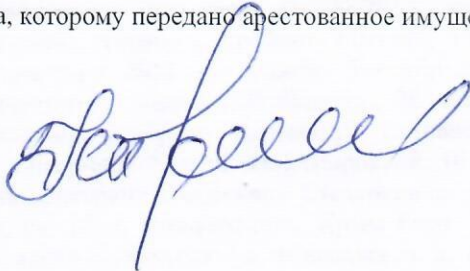 а, которому передано арестованное имуще